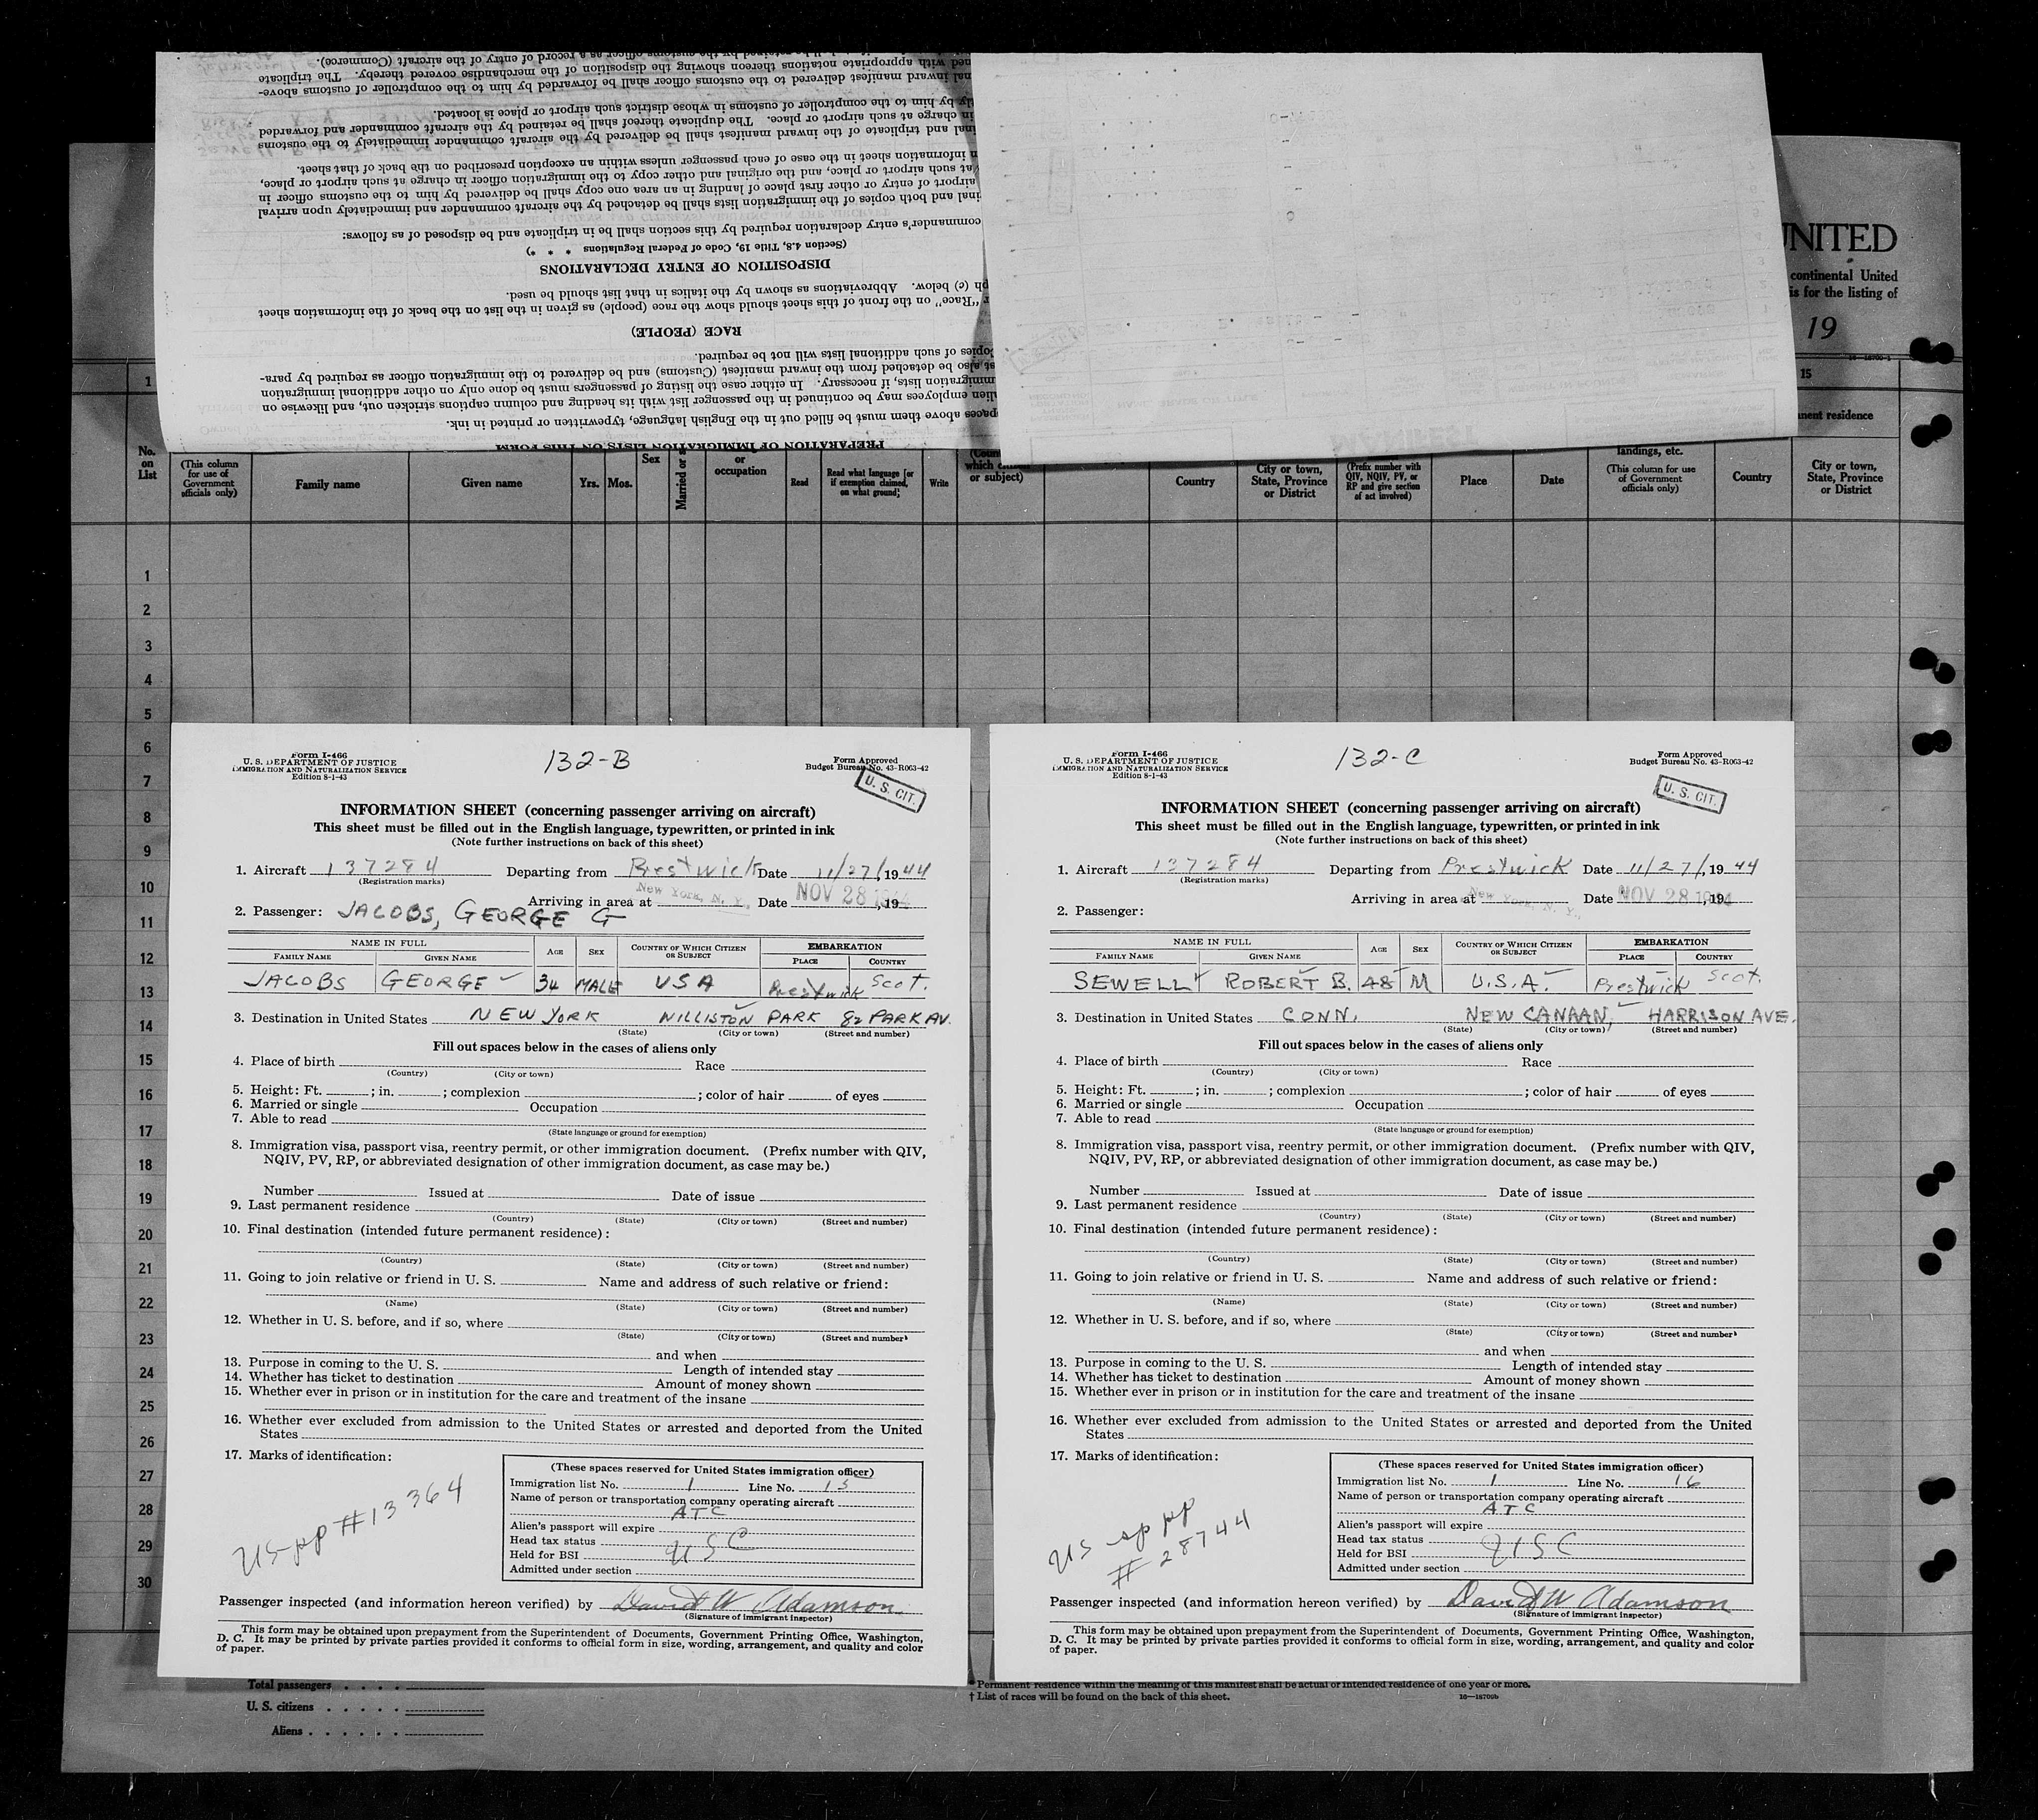 ned with appropriate notations thereon showing the disposition of the merchandise covered thereby. The triplicate
be retained by the customs officer as a record of entry of the aircraft (Commerce).
nal inward manifest delivered to the customs officer shall be forwarded by him to the comptroller of customs above-
ly by him to the comptroller of customs in whose district such airport or place is located.
in charge at such airport or place. The duplicate thereof shall be retained by the aircraft commander and forwarded
inal and triplicate of the inward manifest shall be delivered by the aircraft commander immediately to the customs
n information sheet in the case of each passenger unless within an exception prescribed on the back of that sheet.
at such airport or place, and the original and other copy to the immigration officer in charge at such airport or place,
airport of entry or other first place of landing in an area one copy shall be delivered by him to the customs officer in
inal and both copies of the immigration lists shall be detached by the aircraft commander and immediately upon arrival
commander's entry declaration required by this section shall be in triplicate and be disposed of as follows:
(Section 4.8, Title 19, Code of Federal Regulations * * *)
DISPOSITION OF ENTRY DECLARATIONS
ph (c) below. Abbreviations as shown by the italics in that list should be used.
r "Race" on the front of this sheet should show the race (people) as given in the list on the back of the information sheet
RACE (PEOPLE)
opies of such additional lists will not be required.
st also be detached from the inward manifest (Customs) and be delivered to the immigration officer as required by para-
mmigration lists, if necessary. In either case the listing of passengers must be done only on other additional immigration
lien employees may be continued in the passenger list with its heading and column captions stricken out, and likewise on
paces above them must be filled out in the English language, typewritten or printed in ink.
PREPARATION OF IMMIGRATION LISTS ON THIS FORM
UNITED
continental United
is for the listing of
19
1
15
nent residence
No. on List
(This column for use of Government officials only)
Family name
Given name
Yrs.
Mos.
Sex
Married or s
or occupation
Read
Read what language [or if exemption claimed, on what ground]
Write
(Coun
which citizen
or subject)
Country
City or town, State, Province or District
(Prefix number with QIV, NQIV, PV, or RP and give section of act involved)
Place
Date
landings, etc.
(This column for use of Government officials only)
Country
City or town, State, Province or District
1
2
3
4
5
6
7
8
9
10
11
12
13
14
15
16
17
18
19
20
21
22
23
24
25
26
27
28
29
30
Form I-466
U. S. DEPARTMENT OF JUSTICE
IMMIGRATION AND NATURALIZATION SERVICE
Edition 8-1-43
132-B
Form Approved
Budget Bureau No. 43-R063-42
U. S. CIT.
INFORMATION SHEET (concerning passenger arriving on aircraft)
This sheet must be filled out in the English language, typewritten, or printed in ink
(Note further instructions on back of this sheet)
1. Aircraft 137284 Departing from Prestwick Date 11/27/, 1944
(Registration marks)
Arriving in area at New York, N. Y., Date NOV 28 1944, 19
2. Passenger: JACOBS, GEORGE G
NAME IN FULL
FAMILY NAME GIVEN NAME AGE SEX COUNTRY OF WHICH CITIZEN OR SUBJECT EMBARKATION PLACE COUNTRY
JACOBS GEORGE 34 MALE USA Prestwick Scot.
3. Destination in United States NEW YORK WILLISTON PARK 82 PARK AV.
(State) (City or town) (Street and number)
Fill out spaces below in the cases of aliens only
4. Place of birth Race
(Country) (City or town)
5. Height: Ft. ; in. ; complexion ; color of hair of eyes
6. Married or single Occupation
7. Able to read
(State language or ground for exemption)
8. Immigration visa, passport visa, reentry permit, or other immigration document. (Prefix number with QIV,
NQIV, PV, RP, or abbreviated designation of other immigration document, as case may be.)
Number Issued at Date of issue
9. Last permanent residence
(Country) (State) (City or town) (Street and number)
10. Final destination (intended future permanent residence):
(Country) (State) (City or town) (Street and number)
11. Going to join relative or friend in U. S. Name and address of such relative or friend:
(Name) (State) (City or town) (Street and number)
12. Whether in U. S. before, and if so, where
(State) (City or town) (Street and number)
and when
13. Purpose in coming to the U. S. Length of intended stay
14. Whether has ticket to destination Amount of money shown
15. Whether ever in prison or in institution for the care and treatment of the insane
16. Whether ever excluded from admission to the United States or arrested and deported from the United
States
17. Marks of identification:
US pp #13364
(These spaces reserved for United States immigration officer)
Immigration list No. 1 Line No. 15
Name of person or transportation company operating aircraft
ATC
Alien's passport will expire
Head tax status USC
Held for BSI
Admitted under section
Passenger inspected (and information hereon verified) by David W Adamson
(Signature of immigrant inspector)
This form may be obtained upon prepayment from the Superintendent of Documents, Government Printing Office, Washington,
D. C. It may be printed by private parties provided it conforms to official form in size, wording, arrangement, and quality and color
of paper.
Form I-466
U. S. DEPARTMENT OF JUSTICE
IMMIGRATION AND NATURALIZATION SERVICE
Edition 8-1-43
132-C
Form Approved
Budget Bureau No. 43-R063-42
U. S. CIT.
INFORMATION SHEET (concerning passenger arriving on aircraft)
This sheet must be filled out in the English language, typewritten, or printed in ink
(Note further instructions on back of this sheet)
1. Aircraft 137284 Departing from Prestwick Date 11/27/, 1944
(Registration marks)
Arriving in area at New York, N. Y., Date NOV 28 1944, 19
2. Passenger:
NAME IN FULL
FAMILY NAME GIVEN NAME AGE SEX COUNTRY OF WHICH CITIZEN OR SUBJECT EMBARKATION PLACE COUNTRY
SEWELL ROBERT B. 48 M U.S.A. Prestwick Scot.
3. Destination in United States CONN. NEW CANAAN, HARRISON AVE.
(State) (City or town) (Street and number)
Fill out spaces below in the cases of aliens only
4. Place of birth Race
(Country) (City or town)
5. Height: Ft. ; in. ; complexion ; color of hair of eyes
6. Married or single Occupation
7. Able to read
(State language or ground for exemption)
8. Immigration visa, passport visa, reentry permit, or other immigration document. (Prefix number with QIV,
NQIV, PV, RP, or abbreviated designation of other immigration document, as case may be.)
Number Issued at Date of issue
9. Last permanent residence
(Country) (State) (City or town) (Street and number)
10. Final destination (intended future permanent residence):
(Country) (State) (City or town) (Street and number)
11. Going to join relative or friend in U. S. Name and address of such relative or friend:
(Name) (State) (City or town) (Street and number)
12. Whether in U. S. before, and if so, where
(State) (City or town) (Street and number)
and when
13. Purpose in coming to the U. S. Length of intended stay
14. Whether has ticket to destination Amount of money shown
15. Whether ever in prison or in institution for the care and treatment of the insane
16. Whether ever excluded from admission to the United States or arrested and deported from the United
States
17. Marks of identification:
US sp pp
# 28744
(These spaces reserved for United States immigration officer)
Immigration list No. 1 Line No. 16
Name of person or transportation company operating aircraft
ATC
Alien's passport will expire
Head tax status USC
Held for BSI
Admitted under section
Passenger inspected (and information hereon verified) by David W Adamson
(Signature of immigrant inspector)
This form may be obtained upon prepayment from the Superintendent of Documents, Government Printing Office, Washington,
D. C. It may be printed by private parties provided it conforms to official form in size, wording, arrangement, and quality and color
of paper.
Total passengers
U. S. citizens
Aliens
* Permanent residence within the meaning of this manifest shall be actual or intended residence of one year or more.
† List of races will be found on the back of this sheet.
16—18700b